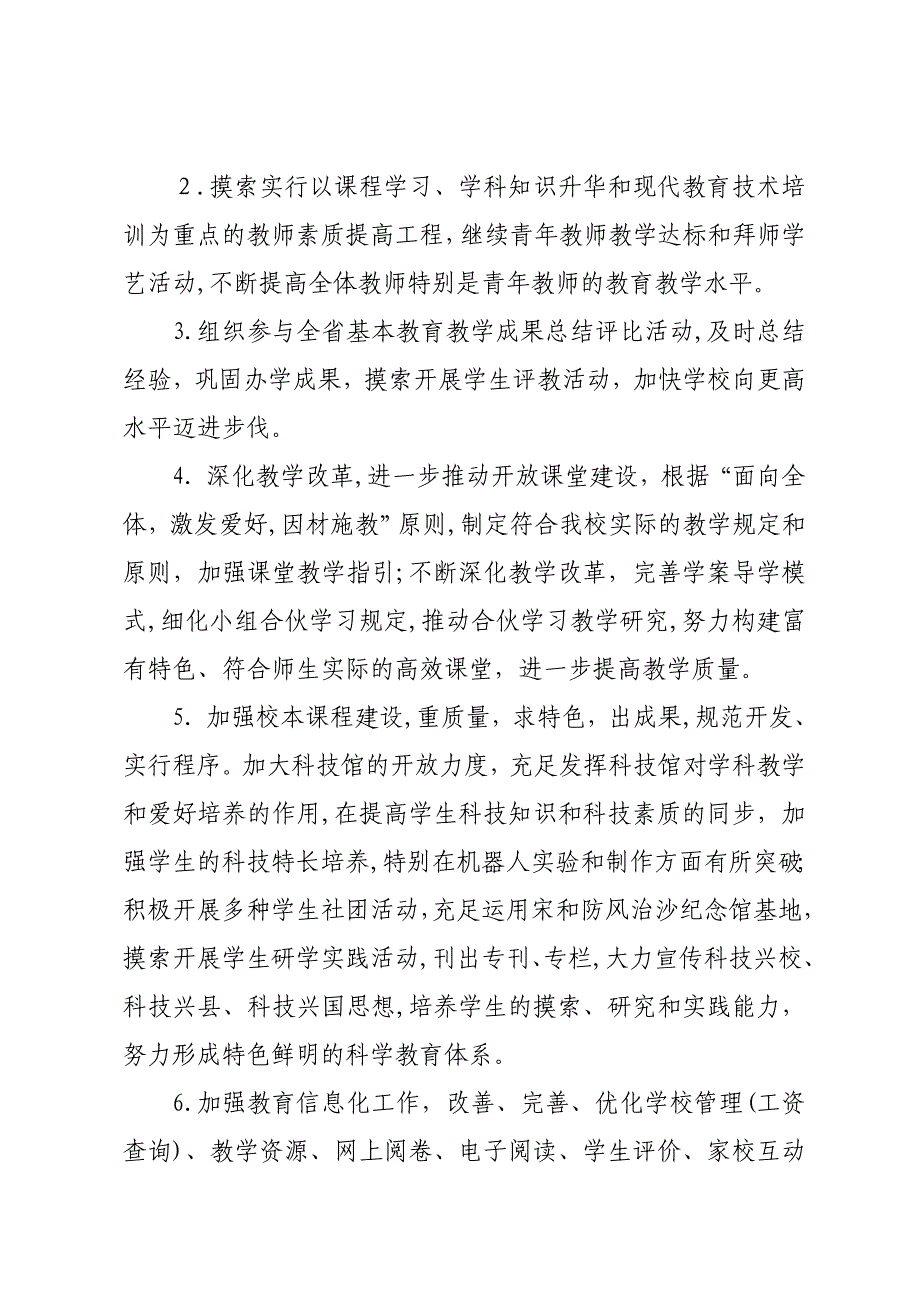 ２.摸索实行以课程学习、学科知识升华和现代教育技术培
训为重点的教师素质提高工程，继续青年教师教学达标和拜师学
艺活动,不断提高全体教师特别是青年教师的教育教学水平。
3.组织参与全省基本教育教学成果总结评比活动,及时总结
经验，巩固办学成果，摸索开展学生评教活动，加快学校向更高
水平迈进步伐。
4. 深化教学改革,进一步推动开放课堂建设，根据“面向全
体，激发爱好,因材施教”原则,制定符合我校实际的教学规定和
原则，加强课堂教学指引;不断深化教学改革，完善学案导学模
式,细化小组合伙学习规定,推动合伙学习教学研究,努力构建富
有特色、符合师生实际的高效课堂，进一步提高教学质量。
5. 加强校本课程建设,重质量，求特色，出成果,规范开发、
实行程序。加大科技馆的开放力度，充足发挥科技馆对学科教学
和爱好培养的作用,在提高学生科技知识和科技素质的同步，加
强学生的科技特长培养,特别在机器人实验和制作方面有所突破;
积极开展多种学生社团活动，充足运用宋和防风治沙纪念馆基地，
摸索开展学生研学实践活动,刊出专刊、专栏,大力宣传科技兴校、
科技兴县、科技兴国思想,培养学生的摸索、研究和实践能力，
努力形成特色鲜明的科学教育体系。
6.加强教育信息化工作，改善、完善、优化学校管理(工资
查询)、教学资源、网上阅卷、电子阅读、学生评价、家校互动